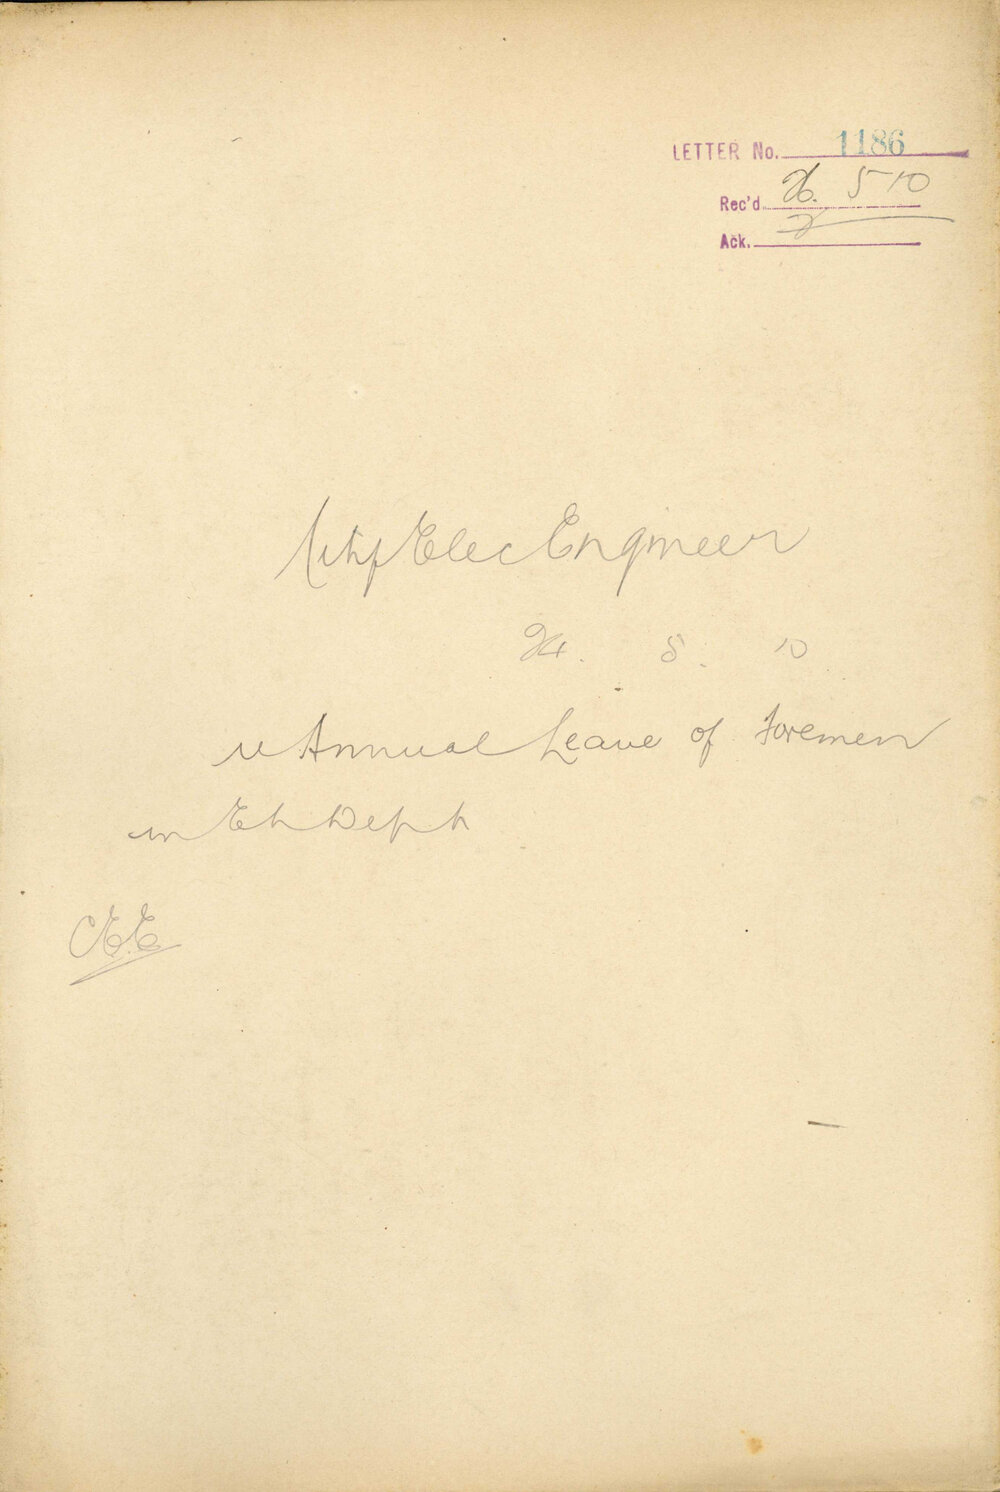 LETTER No. 1186
Rec'd 26. 5 10
Ack.
Chf Elec Engineer
24. 5. 10
re Annual Leave of Foremen
in El Dept
C.E.E